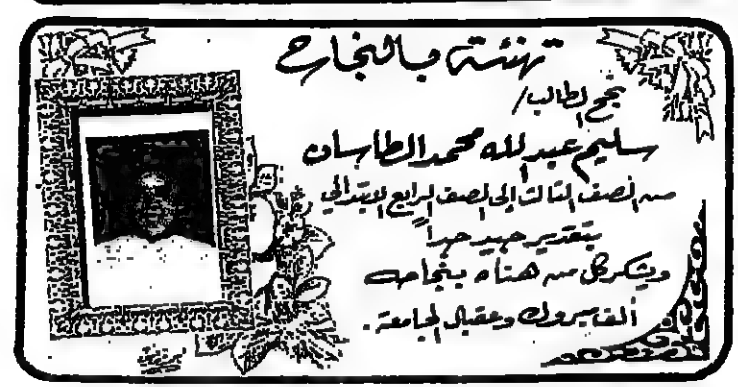 تهنئة بالنجاح
نجح الطالب/
سليم عبدالله محمد الطاسان
من الصف الثالث إلى الصف الرابع الابتدائي
بتقدير جيد جداً
ويشكر كل من هنأه بنجاحه
ألف مبروك وعقبال الجامعة.